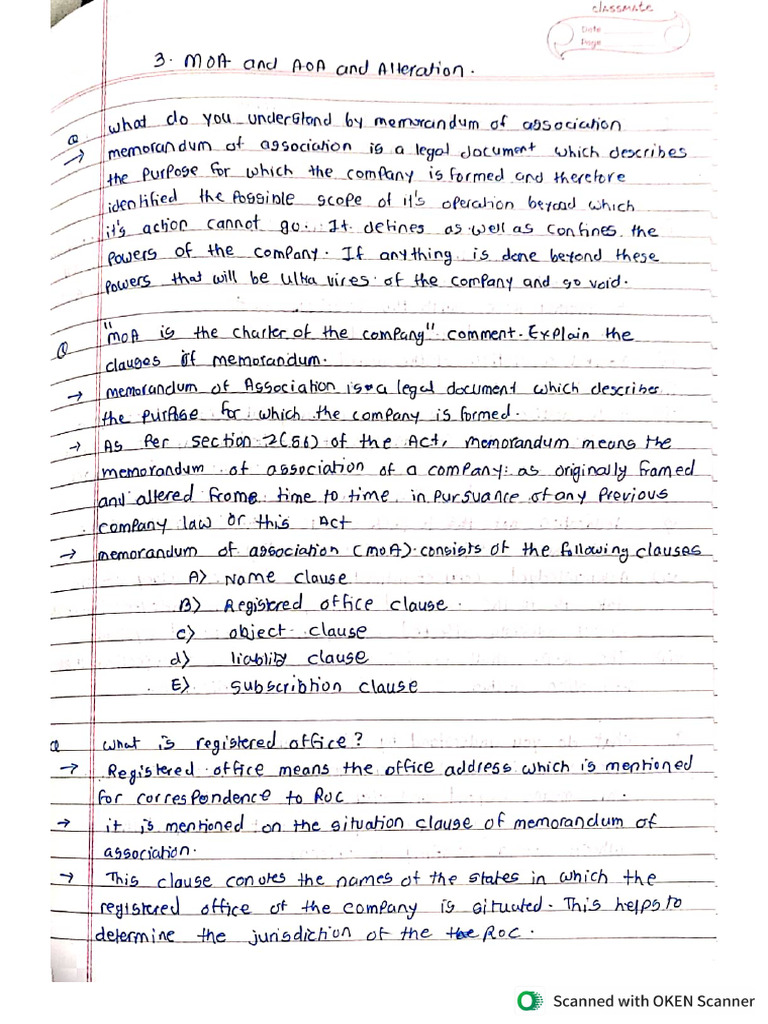 classmate
Date
Page
3. MOA and AOA and Alteration.
Q what do you understand by memorandum of association
→ memorandum of association is a legal document which describes
the purpose for which the company is formed and therefore
identified the possible scope of it's operation beyond which
it's action cannot go. It defines as well as confines the
powers of the company. If anything is done beyond these
powers that will be ultra vires of the company and so void.
Q "MOA is the charter of the company" comment. Explain the
clauses of memorandum.
→ memorandum of Association is a legal document which describes
the purpose for which the company is formed.
→ As per section 2(56) of the Act, memorandum means the
memorandum of association of a company: as originally framed
and altered from time to time in pursuance of any previous
company law or this Act
→ memorandum of association (MOA) consists of the following clauses
A) Name clause
B) Registred office clause.
C) object clause
d) liablity clause
E) subscribtion clause
Q what is registered office?
→ Registered office means the office address which is mentioned
for correspondence to ROC
→ it is mentioned on the situation clause of memorandum of
association.
→ This clause conotes the names of the states in which the
registered office of the company is situated. This helps to
determine the jurisdiction of the the ROC.
Scanned with OKEN Scanner